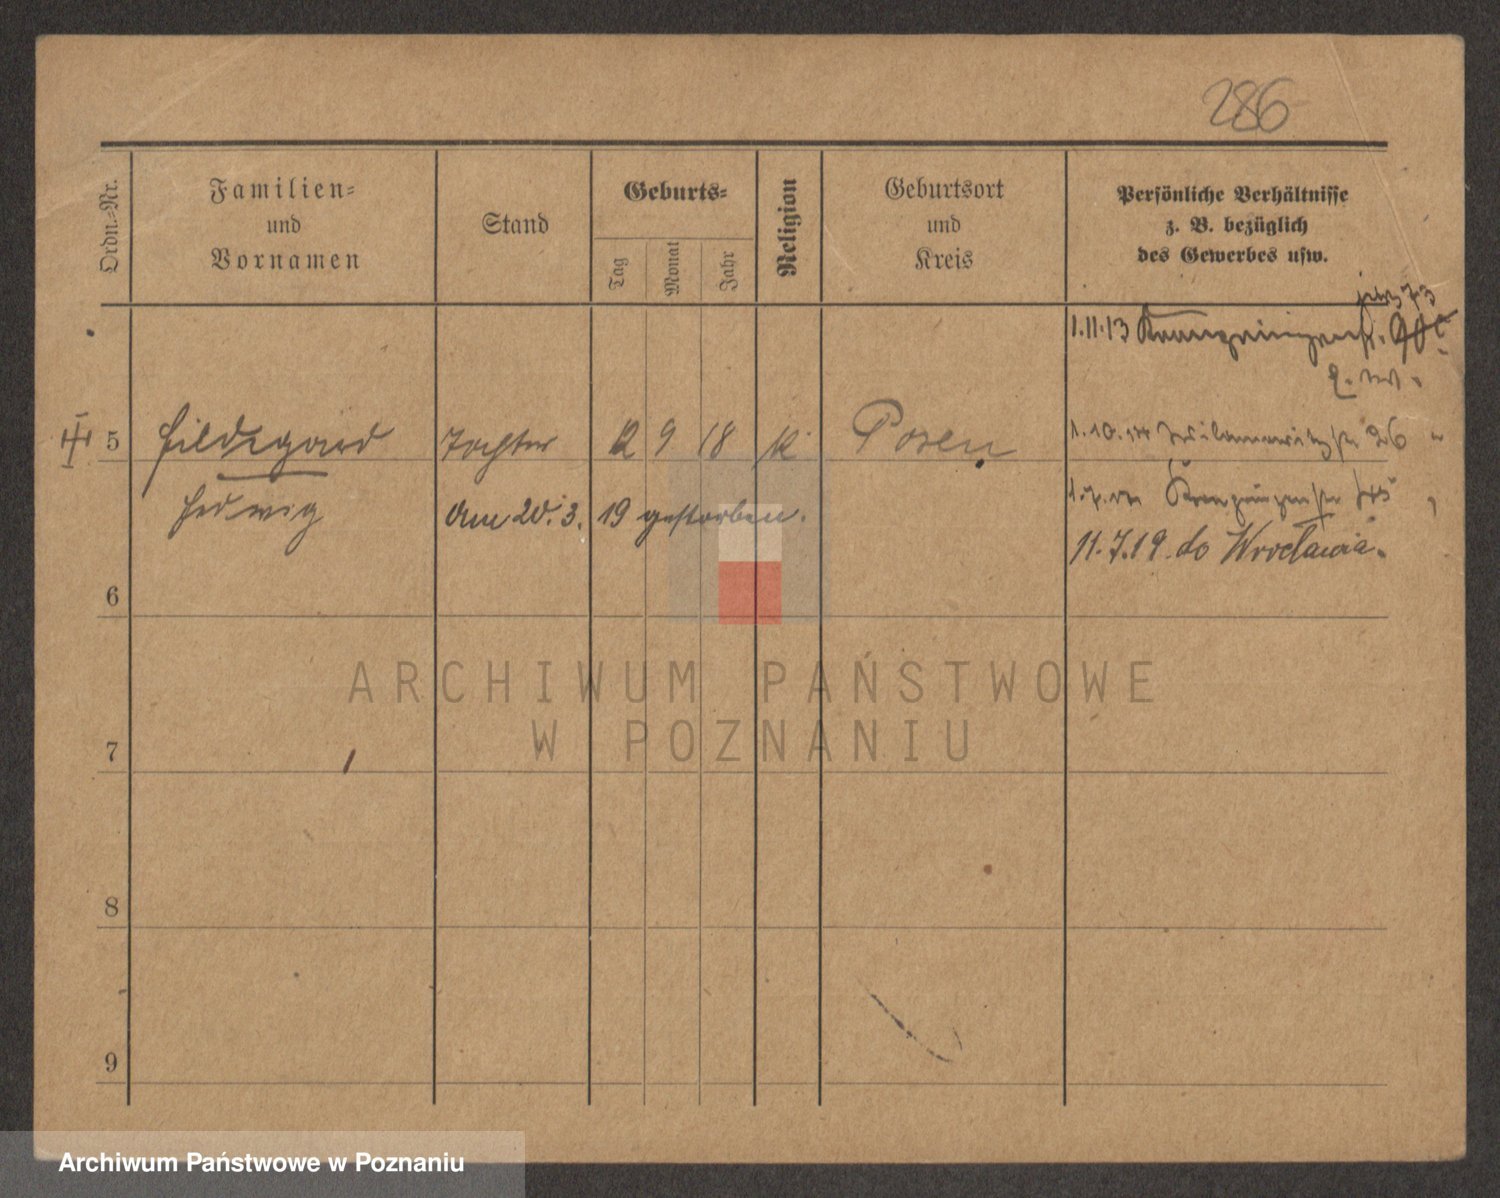 286
Ordn.-Nr.
Familien-
und
Vornamen
Stand
Geburts-
Tag
Monat
Jahr
Religion
Geburtsort
und
Kreis
Persönliche Verhältnisse
z. B. bezüglich
des Gewerbes usw.
73
1.11.13
5 Hildegard Tochter 2 9 18 k Posen 1.10. 26
Hedwig am 20.3.19 gestorben.
11.7.19. do Wrocławia.
6
7
8
9
ARCHIWUM PAŃSTWOWE
W POZNANIU
Archiwum Państwowe w Poznaniu